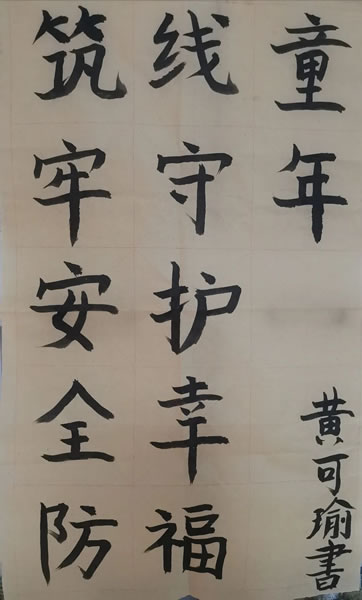 筑牢安全防
线守护幸福
童年
黄可瑜書